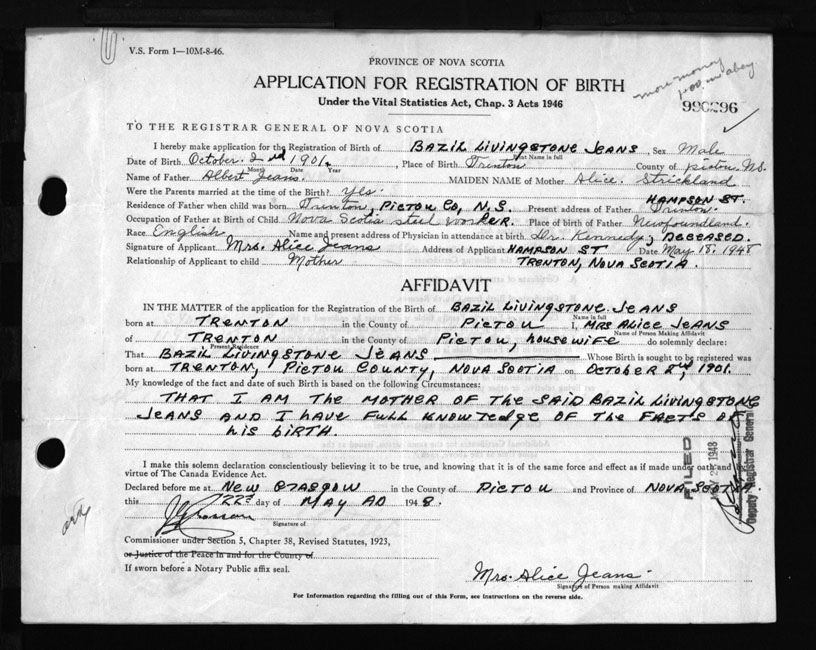 V.S. Form 1—10M-8-46.
PROVINCE OF NOVA SCOTIA
APPLICATION FOR REGISTRATION OF BIRTH
Under the Vital Statistics Act, Chap. 3 Acts 1946
more money
990296
TO THE REGISTRAR GENERAL OF NOVA SCOTIA
I hereby make application for the Registration of Birth of BAZIL LIVINGSTONE JEANS, Sex Male
Print Name in full
Date of Birth October 2nd 1901. , Place of Birth Trenton County of Pictou N.S.
Month Date Year
Name of Father Albert Jeans. MAIDEN NAME of Mother Alice. Strickland
Were the Parents married at the time of the Birth? Yes. HAMPSON ST.
Residence of Father when child was born Trenton, PICTOU CO, N.S. Present address of Father Trenton.
Occupation of Father at Birth of Child Nova Scotia steel worker. Place of birth of Father Newfoundland.
Race English Name and present address of Physician in attendance at birth Dr. Kennedy, DECEASED.
Signature of Applicant Mrs. Alice Jeans Address of Applicant HAMPSON ST Date May 18. 1948
Relationship of Applicant to child Mother TRENTON, NOVA SCOTIA.
AFFIDAVIT
IN THE MATTER of the application for the Registration of the Birth of BAZIL LIVINGSTONE JEANS
Name in full
born at TRENTON in the County of PICTOU I, MRS ALICE JEANS
Name of Person Making Affidavit
of TRENTON in the County of PICTOU, HOUSEWIFE do solemnly declare:
Present Residence
That BAZIL LIVINGSTONE JEANS Whose Birth is sought to be registered was
born at TRENTON, PICTOU COUNTY, NOVA SCOTIA on OCTOBER 2nd, 1901.
My knowledge of the fact and date of such Birth is based on the following Circumstances:
THAT I AM THE MOTHER OF THE SAID BAZIL LIVINGSTONE
JEANS AND I HAVE FULL KNOWLEDGE OF THE FACTS OF
HIS BIRTH.
I make this solemn declaration conscientiously believing it to be true, and knowing that it is of the same force and effect as if made under oath and
virtue of The Canada Evidence Act.
Declared before me at NEW GLASGOW in the County of PICTOU and Province of NOVA SCOTIA.
this 22nd day of MAY AD 1948.
Signature of
Commissioner under Section 5, Chapter 38, Revised Statutes, 1923,
or Justice of the Peace in and for the County of
If sworn before a Notary Public affix seal.
Mrs. Alice Jeans
Signature of Person making Affidavit
For Information regarding the filling out of this Form, see Instructions on the reverse side.
FILED
1948
Deputy Registrar General